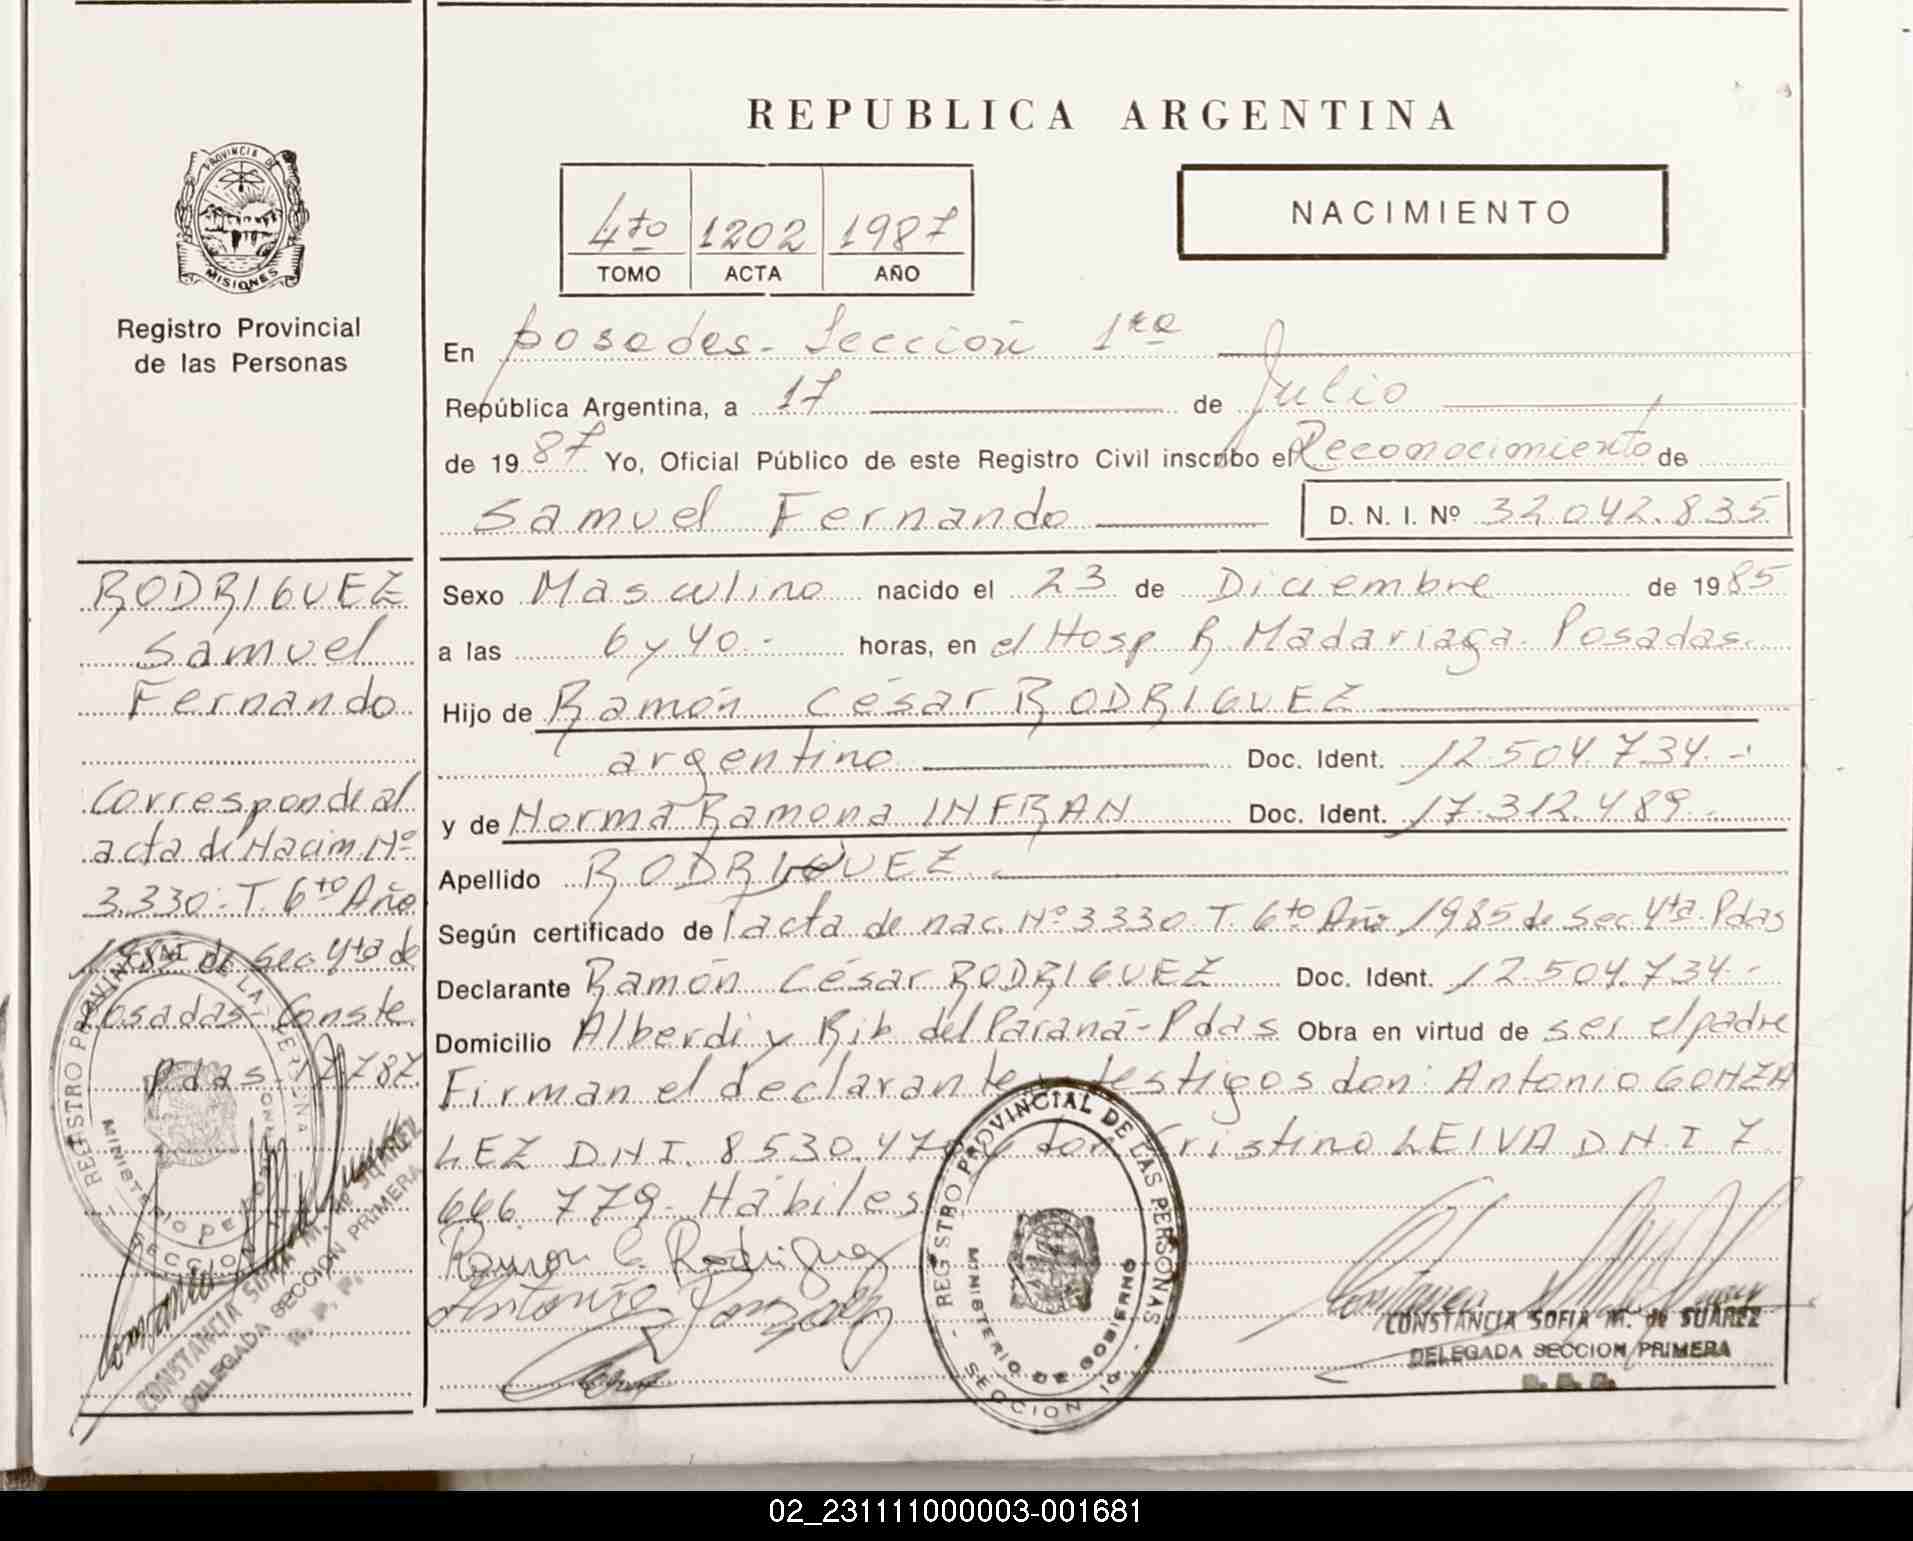 REPUBLICA ARGENTINA
PROVINCIA DE
MISIONES
Registro Provincial
de las Personas
4to 1202 1987
TOMO ACTA AÑO
NACIMIENTO
En posadas - Sección 1ra
República Argentina, a 17 de Julio
de 1987 Yo, Oficial Público de este Registro Civil inscribo el Reconocimiento de
Samuel Fernando D. N. I. Nº 32.042.835
RODRIGUEZ
Samuel
Fernando
Corresponde al
acta de Nacim. Nº
3.330 - T. 6to Año
de Sec. 4ta de
Posadas - Conste
Pdas - 17787.
Sexo Masculino nacido el 23 de Diciembre de 1985
a las 6 y 40.- horas, en el Hosp. R. Madariaga. Posadas.
Hijo de Ramón César RODRIGUEZ
argentino Doc. Ident. 12.504.734.-
y de Norma Ramona INFRAN Doc. Ident. 17.312.489.-
Apellido RODRIGUEZ
Según certificado de l acta de nac. Nº 3330 T. 6to Año 1985 de Sec. 4ta. Pdas
Declarante Ramón César RODRIGUEZ Doc. Ident. 12.504.734.-
Domicilio Alberdi y Rib. del Paraná - Pdas Obra en virtud de ser el padre
Firman el declarante y testigos don: Antonio GONZA
LEZ D.N.I. 8.530.47 y don Cristino LEIVA D.N.I 7
666.779 - Hábiles
Ramon C. Rodriguez
Antonio Gonzalez
REGISTRO PROVINCIAL DE LAS PERSONAS
MINISTERIO DE GOBIERNO
SECCION 1ª
CONSTANCIA SOFIA M. de SUAREZ
DELEGADA SECCION PRIMERA
R. P. P.
REGISTRO PROVINCIAL DE LAS PERSONAS
MINISTERIO DE GOBIERNO
SECCION
CONSTANCIA SOFIA M. de SUAREZ
DELEGADA SECCION PRIMERA
R. P. P.
02_231111000003-001681